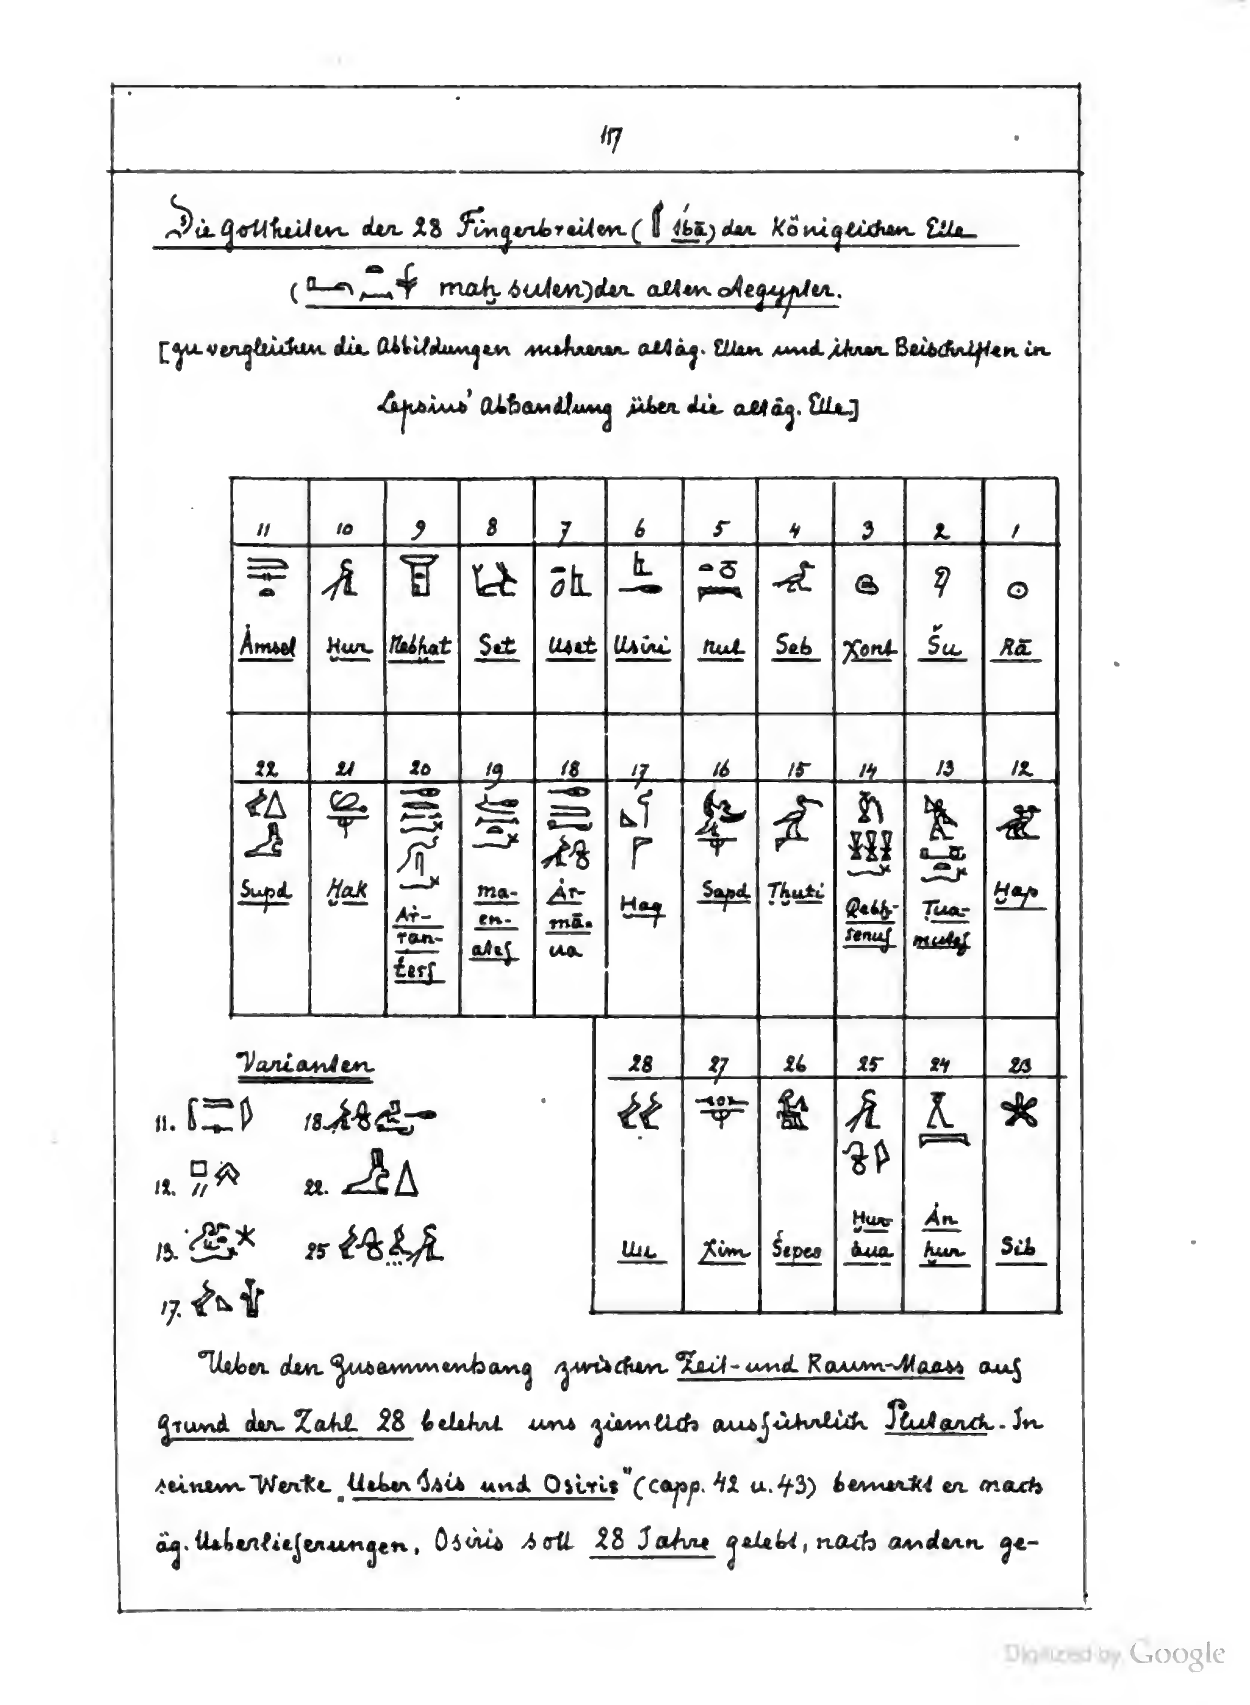 117
Die Gottheiten der 28 Fingerbreiten ( ṭbā) der Königlichen Elle
( maḥ suten) der alten Aegypter.
[zu vergleichen die Abbildungen mehrerer altäg. Ellen und ihrer Beischriften in
Lepsius' Abhandlung über die altäg. Elle.]
11 10 9 8 7 6 5 4 3 2 1
Ȧmset Ḥur Nebḥat Set Uset Usiri Nut Seb Xont Šu Rā
22 21 20 19 18 17 16 15 14 13 12
Supd Ḥak Ȧr-ran-tesf ma-en-atef Ȧr-mā-ua Ḥaq Sapd Thuti Qebḥ-senuf Ṭua-mutef Ḥap
28 27 26 25 24 23
Uu Xim Šepes Ḥur ȧua Ȧn ḥur Sib
Varianten
11. 18.
12. 22.
13. 25
17.
Ueber den Zusammenhang zwischen Zeit- und Raum-Maass auf
Grund der Zahl 28 belehrt uns ziemlich ausführlich Plutarch. In
seinem Werke „Ueber Isis und Osiris" (capp. 42 u. 43) bemerkt er nach
äg. Ueberlieferungen, Osiris soll 28 Jahre gelebt, nach andern ge-
Digitized by Google